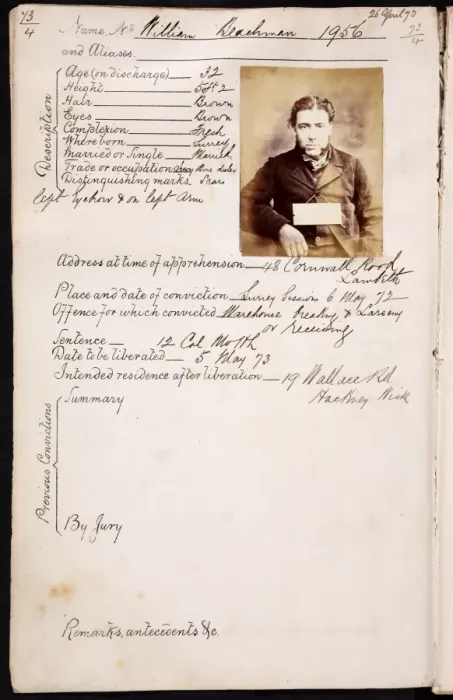 73/4
26 April 73
Name, No. William Beachman 1956 73/4
and Aliases
Description
Age (on discharge) 32
Height 5 ft 2
Hair Brown
Eyes Brown
Complexion Fresh
Where born Surrey
Married or Single Married
Trade or occupation
Distinguishing marks Scars
left Eyebrow & on left Arm
Address at time of apprehension 48 Cornwall Road
Lambeth
Place and date of conviction Surrey Sessions 6 May 72
Offence for which convicted Warehouse breaking & Larceny
or Receiving
Sentence 12 Cal Month
Date to be liberated 5 May 73
Intended residence after liberation 19 Wallace Rd
Hackney Wick
Previous Convictions
Summary
By Jury
Remarks, antecedents &c.